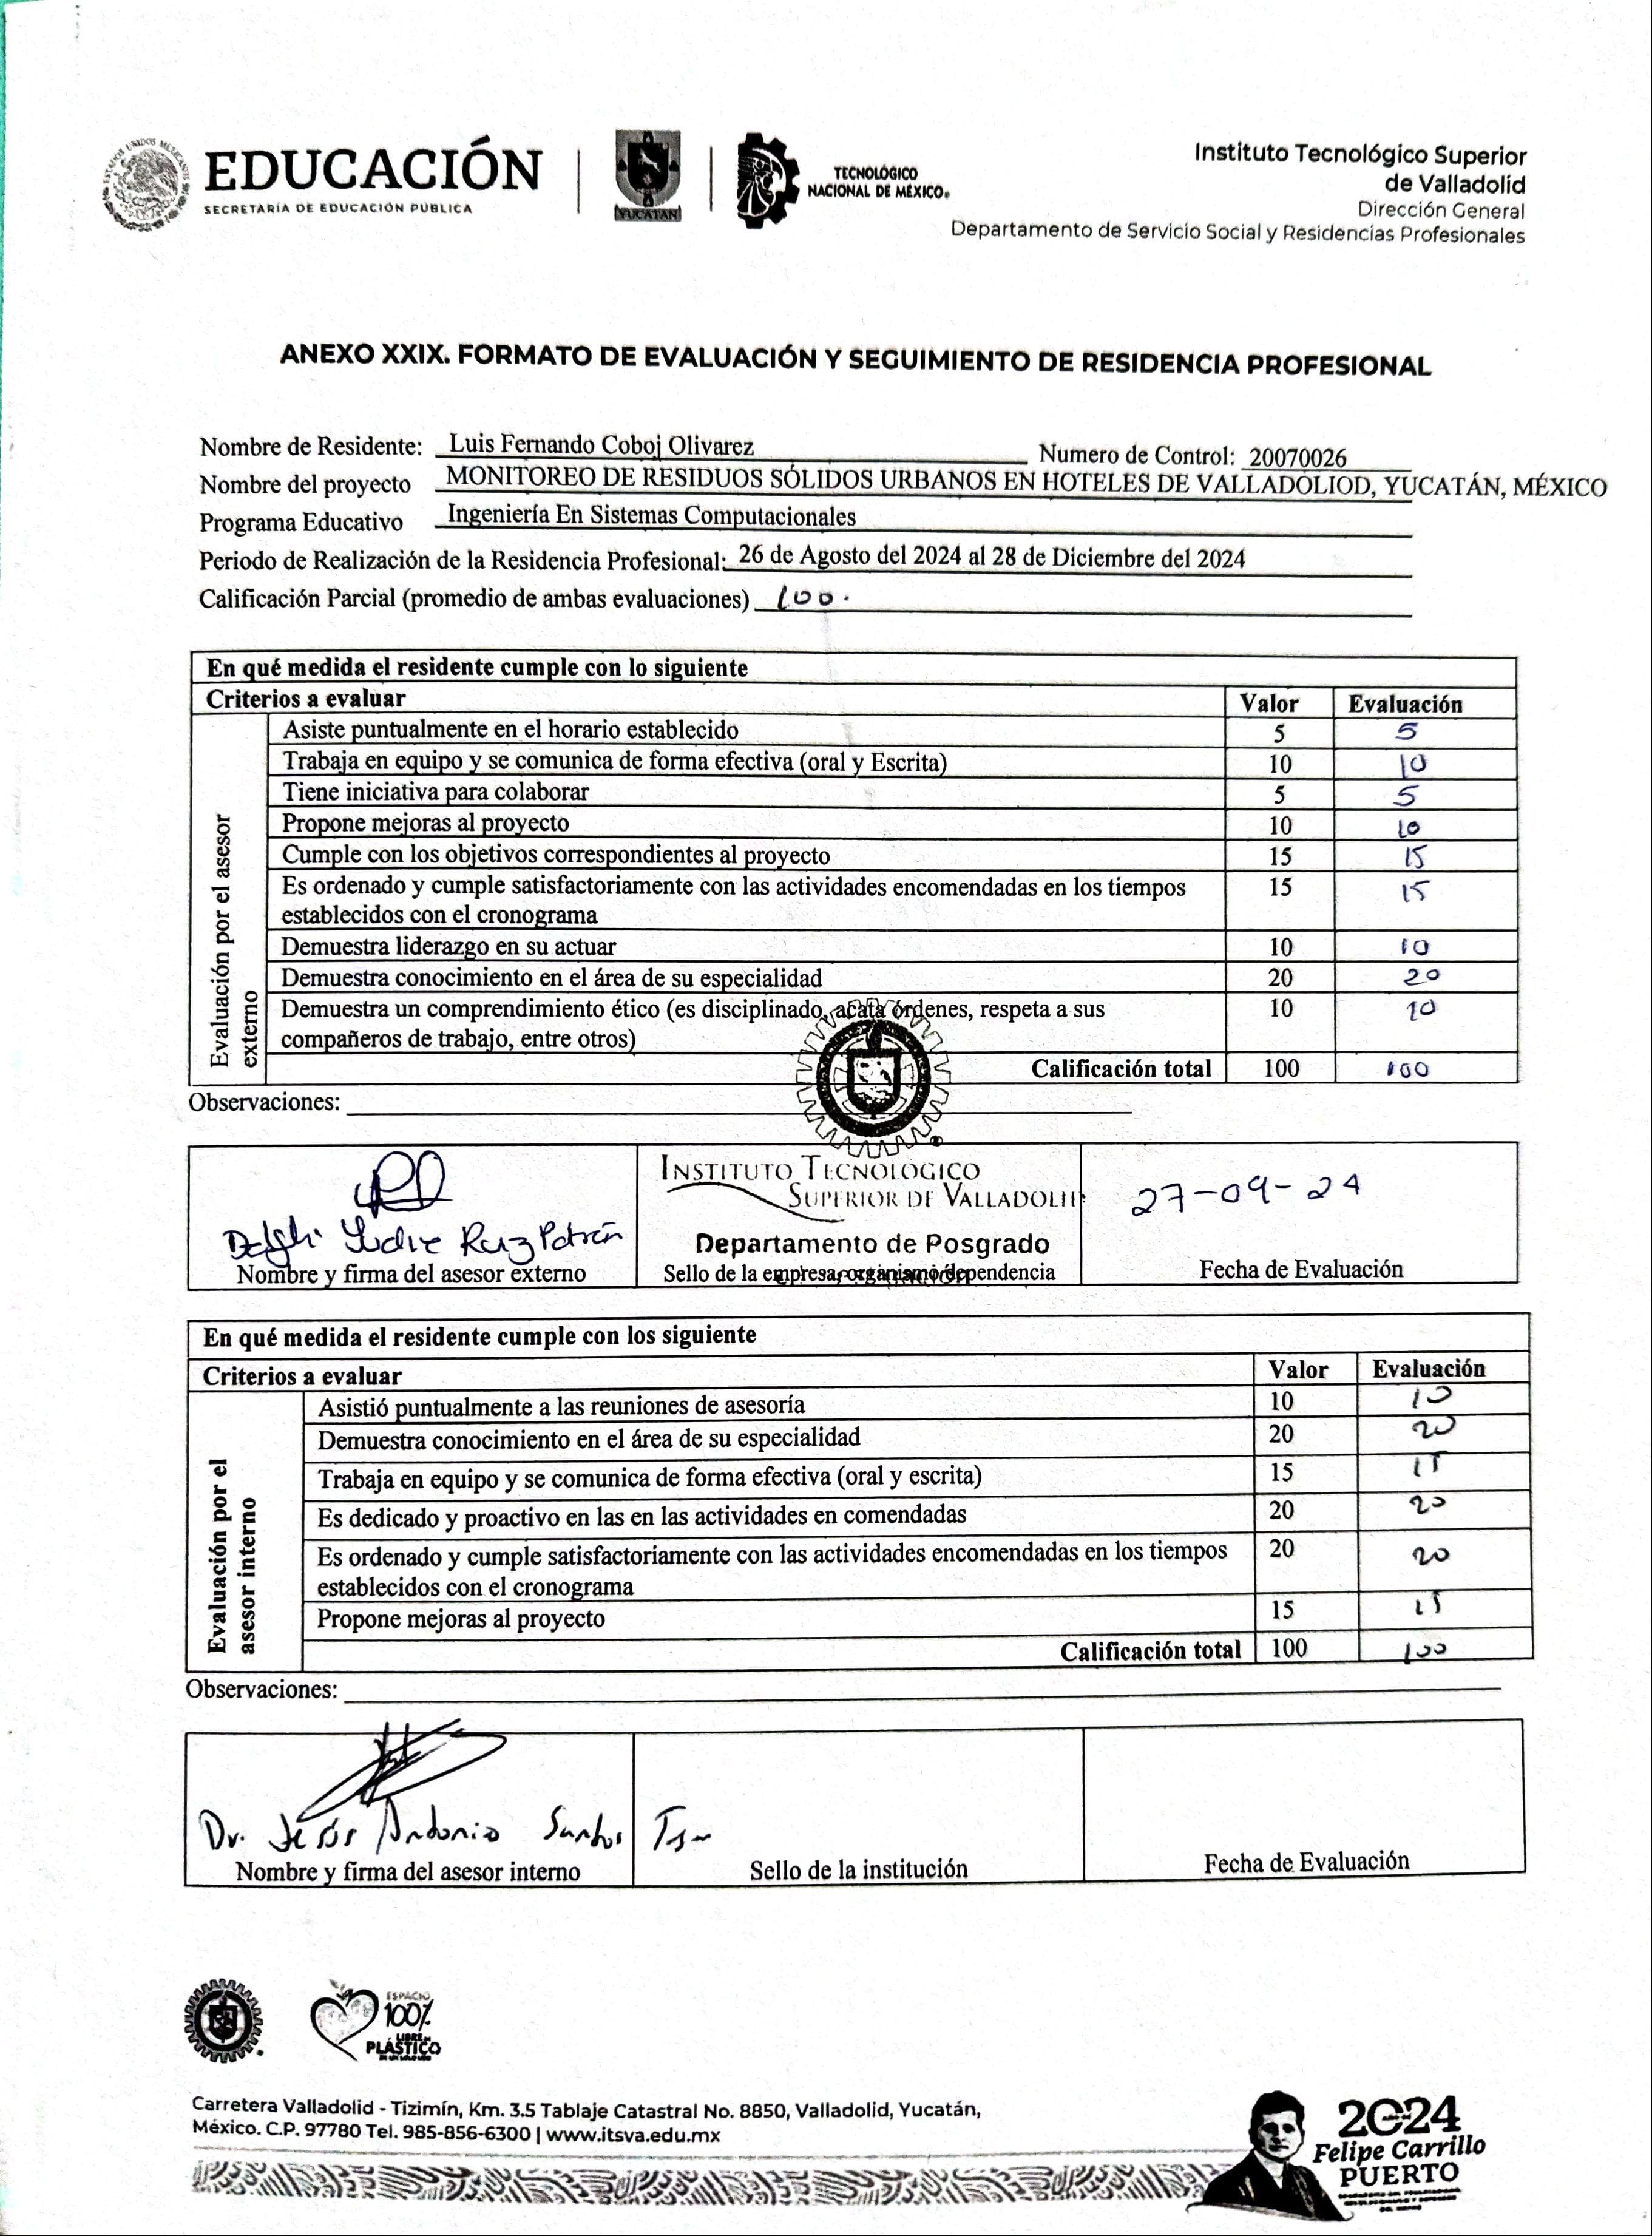 EDUCACIÓN
SECRETARÍA DE EDUCACIÓN PÚBLICA
YUCATÁN
TECNOLÓGICO
NACIONAL DE MÉXICO®
Instituto Tecnológico Superior
de Valladolid
Dirección General
Departamento de Servicio Social y Residencias Profesionales
ANEXO XXIX. FORMATO DE EVALUACIÓN Y SEGUIMIENTO DE RESIDENCIA PROFESIONAL
Nombre de Residente: Luis Fernando Coboj Olivarez Numero de Control: 20070026
Nombre del proyecto MONITOREO DE RESIDUOS SÓLIDOS URBANOS EN HOTELES DE VALLADOLIOD, YUCATÁN, MÉXICO
Programa Educativo Ingeniería En Sistemas Computacionales
Periodo de Realización de la Residencia Profesional: 26 de Agosto del 2024 al 28 de Diciembre del 2024
Calificación Parcial (promedio de ambas evaluaciones) 100.
En qué medida el residente cumple con lo siguiente
Criterios a evaluar Valor Evaluación
Evaluación por el asesor
externo
Asiste puntualmente en el horario establecido 5 5
Trabaja en equipo y se comunica de forma efectiva (oral y Escrita) 10 10
Tiene iniciativa para colaborar 5 5
Propone mejoras al proyecto 10 10
Cumple con los objetivos correspondientes al proyecto 15 15
Es ordenado y cumple satisfactoriamente con las actividades encomendadas en los tiempos 15 15
establecidos con el cronograma
Demuestra liderazgo en su actuar 10 10
Demuestra conocimiento en el área de su especialidad 20 20
Demuestra un comprendimiento ético (es disciplinado, acata órdenes, respeta a sus 10 10
compañeros de trabajo, entre otros)
Calificación total 100 100
Observaciones:
INSTITUTO TECNOLÓGICO
SUPERIOR DE VALLADOLID
27-09-24
Ruiz
Departamento de Posgrado
Nombre y firma del asesor externo Sello de la empresa, organismo dependencia Fecha de Evaluación
En qué medida el residente cumple con los siguiente
Criterios a evaluar Valor Evaluación
Evaluación por el
asesor interno
Asistió puntualmente a las reuniones de asesoría 10 10
Demuestra conocimiento en el área de su especialidad 20 20
Trabaja en equipo y se comunica de forma efectiva (oral y escrita) 15 15
Es dedicado y proactivo en las en las actividades en comendadas 20 20
Es ordenado y cumple satisfactoriamente con las actividades encomendadas en los tiempos 20 20
establecidos con el cronograma
Propone mejoras al proyecto 15 15
Calificación total 100 100
Observaciones:
Dr. Jesús Antonio Santos
Nombre y firma del asesor interno Sello de la institución Fecha de Evaluación
ESPACIO
100%
LIBRE DE
PLÁSTICO
Carretera Valladolid - Tizimín, Km. 3.5 Tablaje Catastral No. 8850, Valladolid, Yucatán,
México. C.P. 97780 Tel. 985-856-6300 | www.itsva.edu.mx
2024
Felipe Carrillo
PUERTO